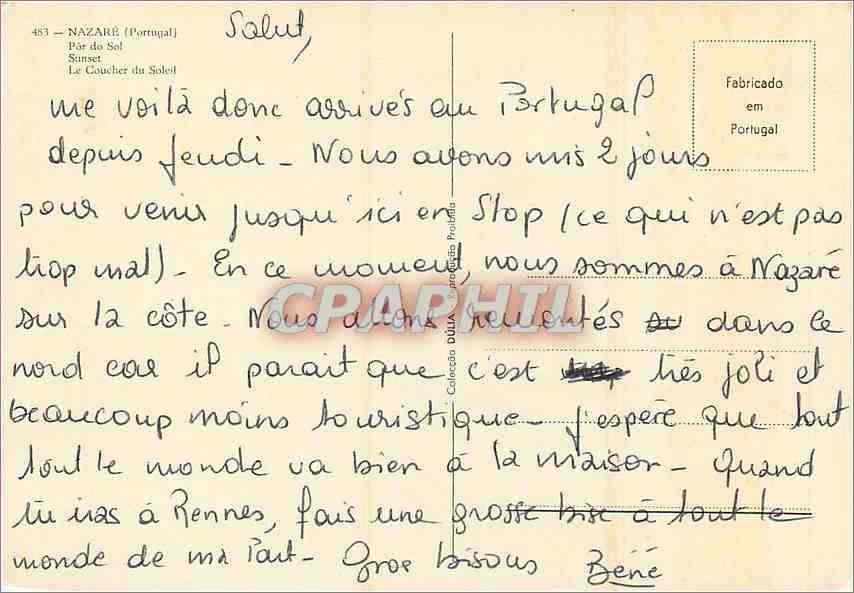 483 — NAZARÉ (Portugal)
Pôr do Sol
Sunset
Le Coucher du Soleil
Fabricado
em
Portugal
Colecção DÚLIA Reprodução Proibida
CPAPHIL
Salut,
me voilà donc arrivés au Portugal
depuis Jeudi - Nous avons mis 2 jours
pour venir jusqu'ici en Stop (ce qui n'est pas
trop mal) - En ce moment, nous sommes à Nazaré
sur la côte - Nous allons remontés dans le
nord car il parait que c'est très joli et
beaucoup moins touristique - J'espère que tout
tout le monde va bien à la maison - Quand
tu iras à Rennes, fais une grosse bise à tout le
monde de ma Part - Gros bisous Béné